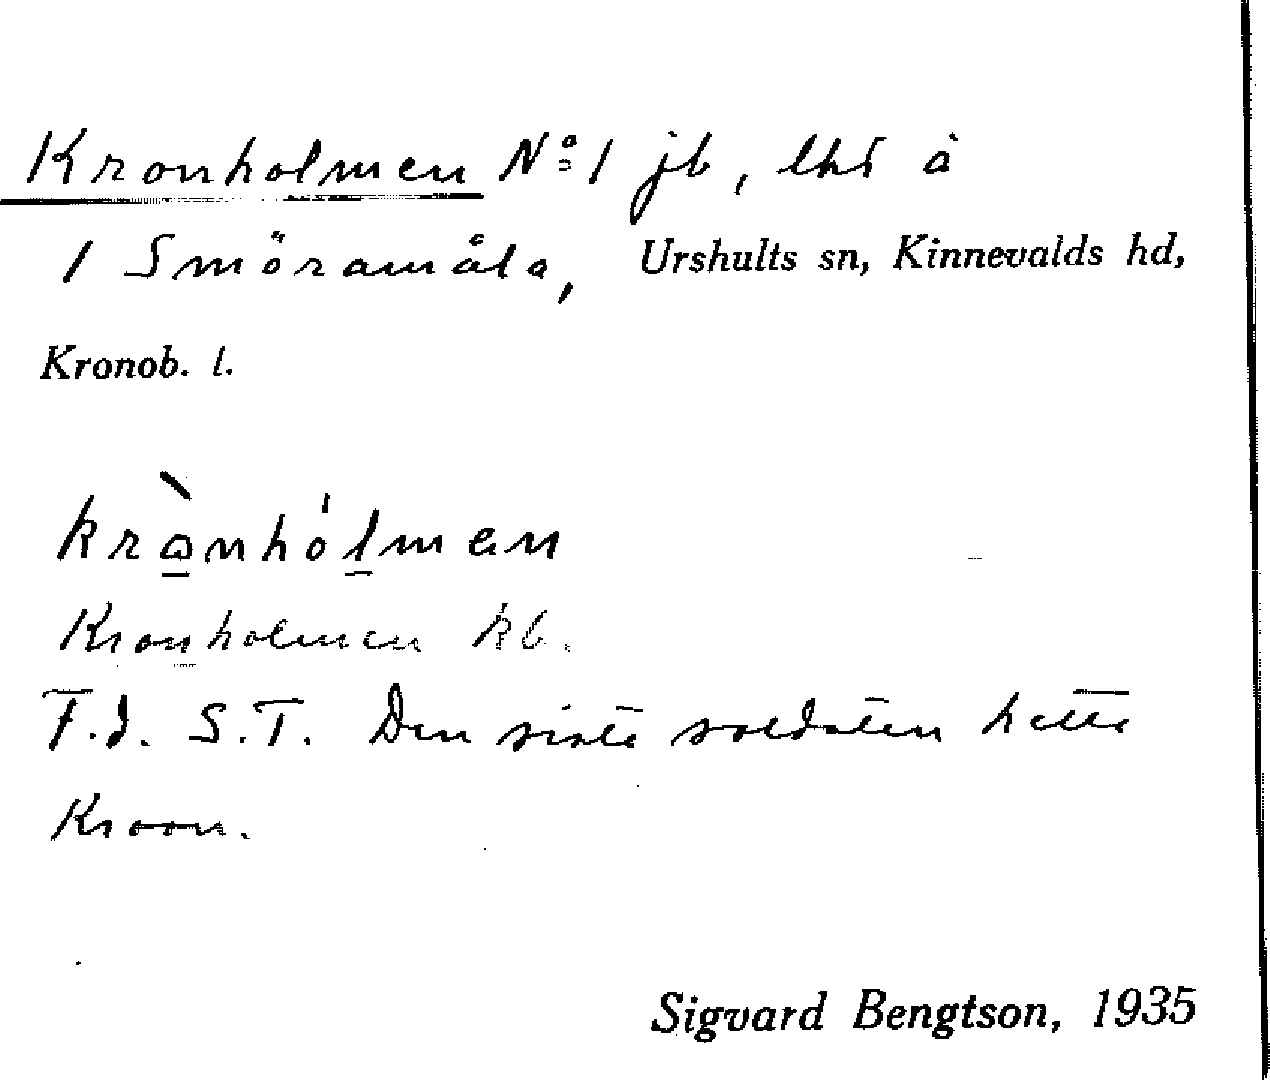 Kronholmen Nº 1 jb, lht å
1 Smöramåla, Urshults sn, Kinnevalds hd,
Kronob. l.
krònhólmen
Kronholmen kb.
F.d. S.T. Den siste soldaten hette
Kroon.
Sigvard Bengtson, 1935